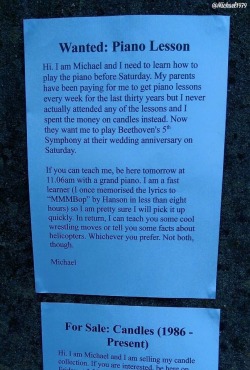 @Michael1979
Wanted: Piano Lesson
Hi. I am Michael and I need to learn how to
play the piano before Saturday. My parents
have been paying for me to get piano lessons
every week for the last thirty years but I never
actually attended any of the lessons and I
spent the money on candles instead. Now
they want me to play Beethoven's 5th
Symphony at their wedding anniversary on
Saturday.
If you can teach me, be here tomorrow at
11.06am with a grand piano. I am a fast
learner (I once memorised the lyrics to
"MMMBop" by Hanson in less than eight
hours) so I am pretty sure I will pick it up
quickly. In return, I can teach you some cool
wrestling moves or tell you some facts about
helicopters. Whichever you prefer. Not both,
though.
Michael
For Sale: Candles (1986 -
Present)
Hi. I am Michael and I am selling my candle
collection. If you are interested, be here on